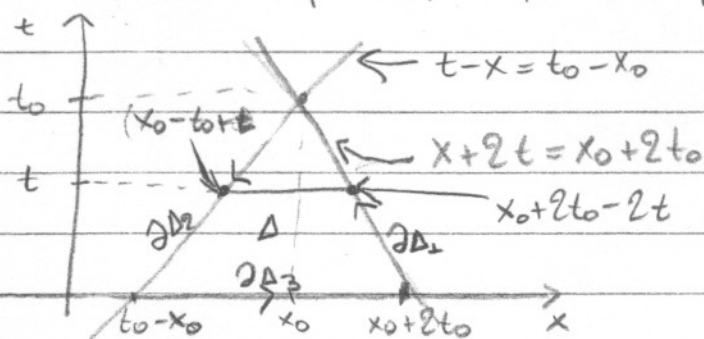 t
t - x = t₀ - x₀
t₀
(x₀ - t₀ + t
x + 2t = x₀ + 2t₀
t
x₀ + 2t₀ - 2t
∂Δ₂
Δ
∂Δ₁
∂Δ₃
t₀ - x₀
x₀
x₀ + 2t₀
x